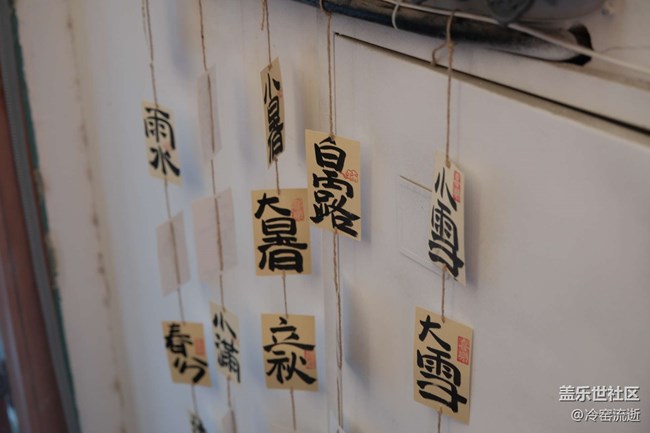 雨水
春分
小满
小暑
大暑
立秋
白露
小雪
大雪
盖乐世社区
@冷窑流逝